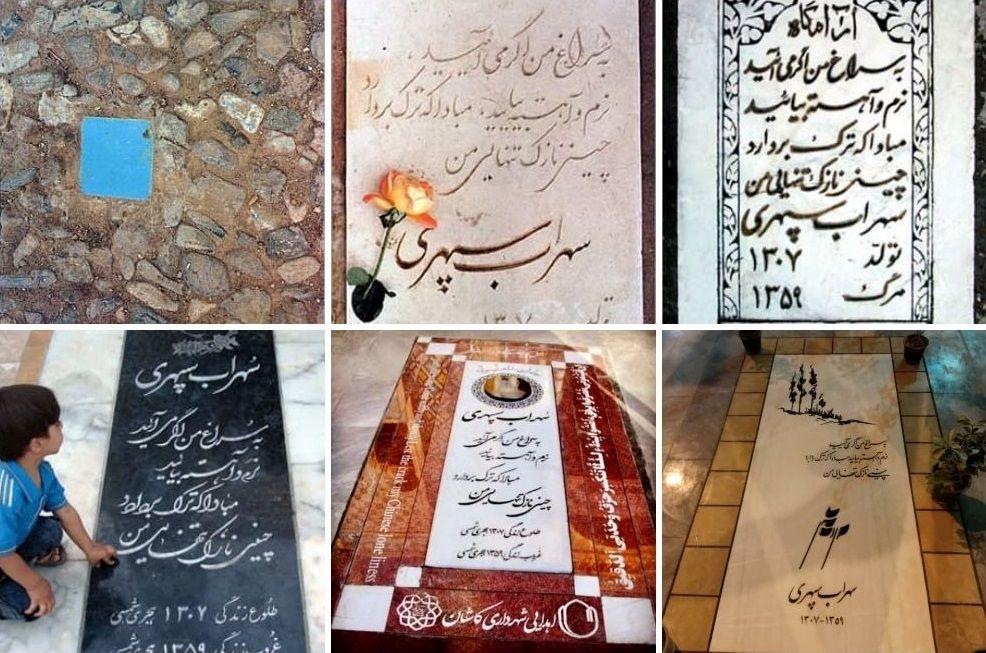 به سراغ من اگر می آیید،
نرم و آهسته بیایید، مبادا که ترک بردارد
چینی نازک تنهایی من
سهراب سپهری
تولد ۱۳۰۷
آرامگاه
به سراغ من اگر می آئید
نرم و آهسته بیائید
مبادا که ترک بردارد
چینی نازک تنهایی من
سهراب سپهری
تولد ۱۳۰۷
مرگ ۱۳۵۹
سهراب سپهری
به سراغ من اگر می آئید
نرم و آهسته بیائید
مبادا که ترک بردارد
چینی نازک تنهایی من
طلوع زندگی ۱۳۰۷ هجری شمسی
غروب زندگی ۱۳۵۹ هجری شمسی
سهراب سپهری
به سراغ من اگر می آئید
نرم و آهسته بیائید
مبادا که ترک بردارد
چینی نازک تنهایی من
طلوع زندگی ۱۳۰۷ هجری شمسی
غروب زندگی ۱۳۵۹ هجری شمسی
the crack my Chinese loneliness
اهدایی شهرداری کاشان
به سراغ من اگر می آیید
نرم و آهسته بیایید مبادا که ترک بردارد
چینی نازک تنهایی من
سهراب سپهری
۱۳۰۷-۱۳۵۹